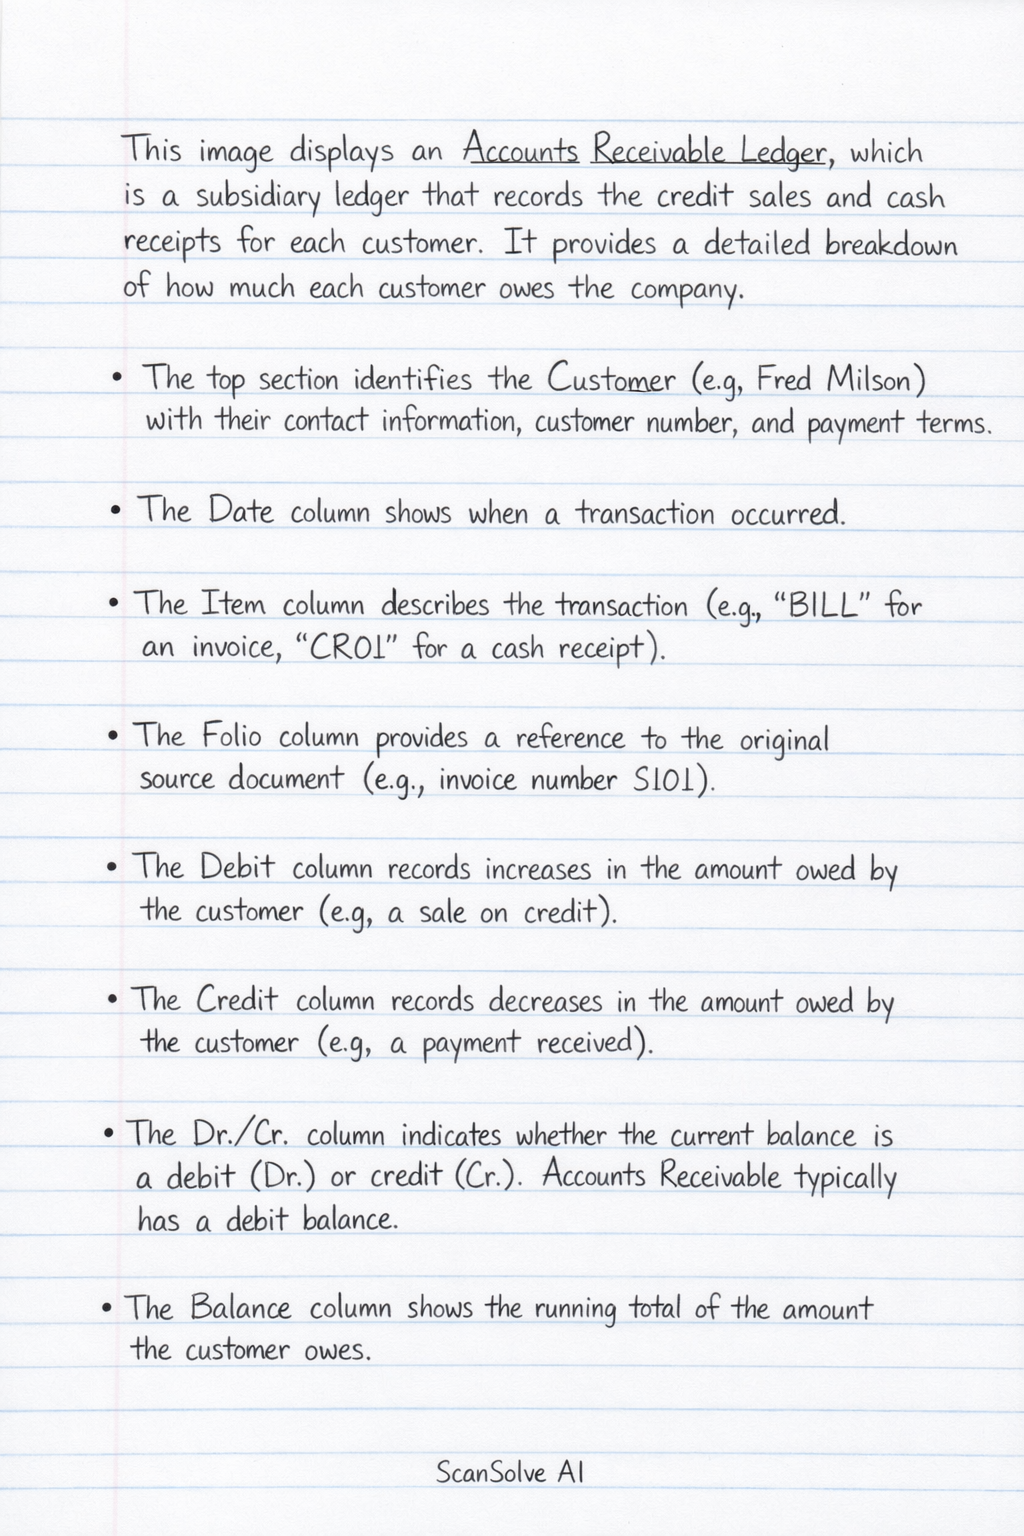 This image displays an Accounts Receivable Ledger, which
is a subsidiary ledger that records the credit sales and cash
receipts for each customer. It provides a detailed breakdown
of how much each customer owes the company.
• The top section identifies the Customer (e.g, Fred Milson)
with their contact information, customer number, and payment terms.
• The Date column shows when a transaction occurred.
• The Item column describes the transaction (e.g., “BILL” for
an invoice, “CR01” for a cash receipt).
• The Folio column provides a reference to the original
source document (e.g., invoice number S101).
• The Debit column records increases in the amount owed by
the customer (e.g, a sale on credit).
• The Credit column records decreases in the amount owed by
the customer (e.g, a payment received).
• The Dr./Cr. column indicates whether the current balance is
a debit (Dr.) or credit (Cr.). Accounts Receivable typically
has a debit balance.
• The Balance column shows the running total of the amount
the customer owes.
ScanSolve AI